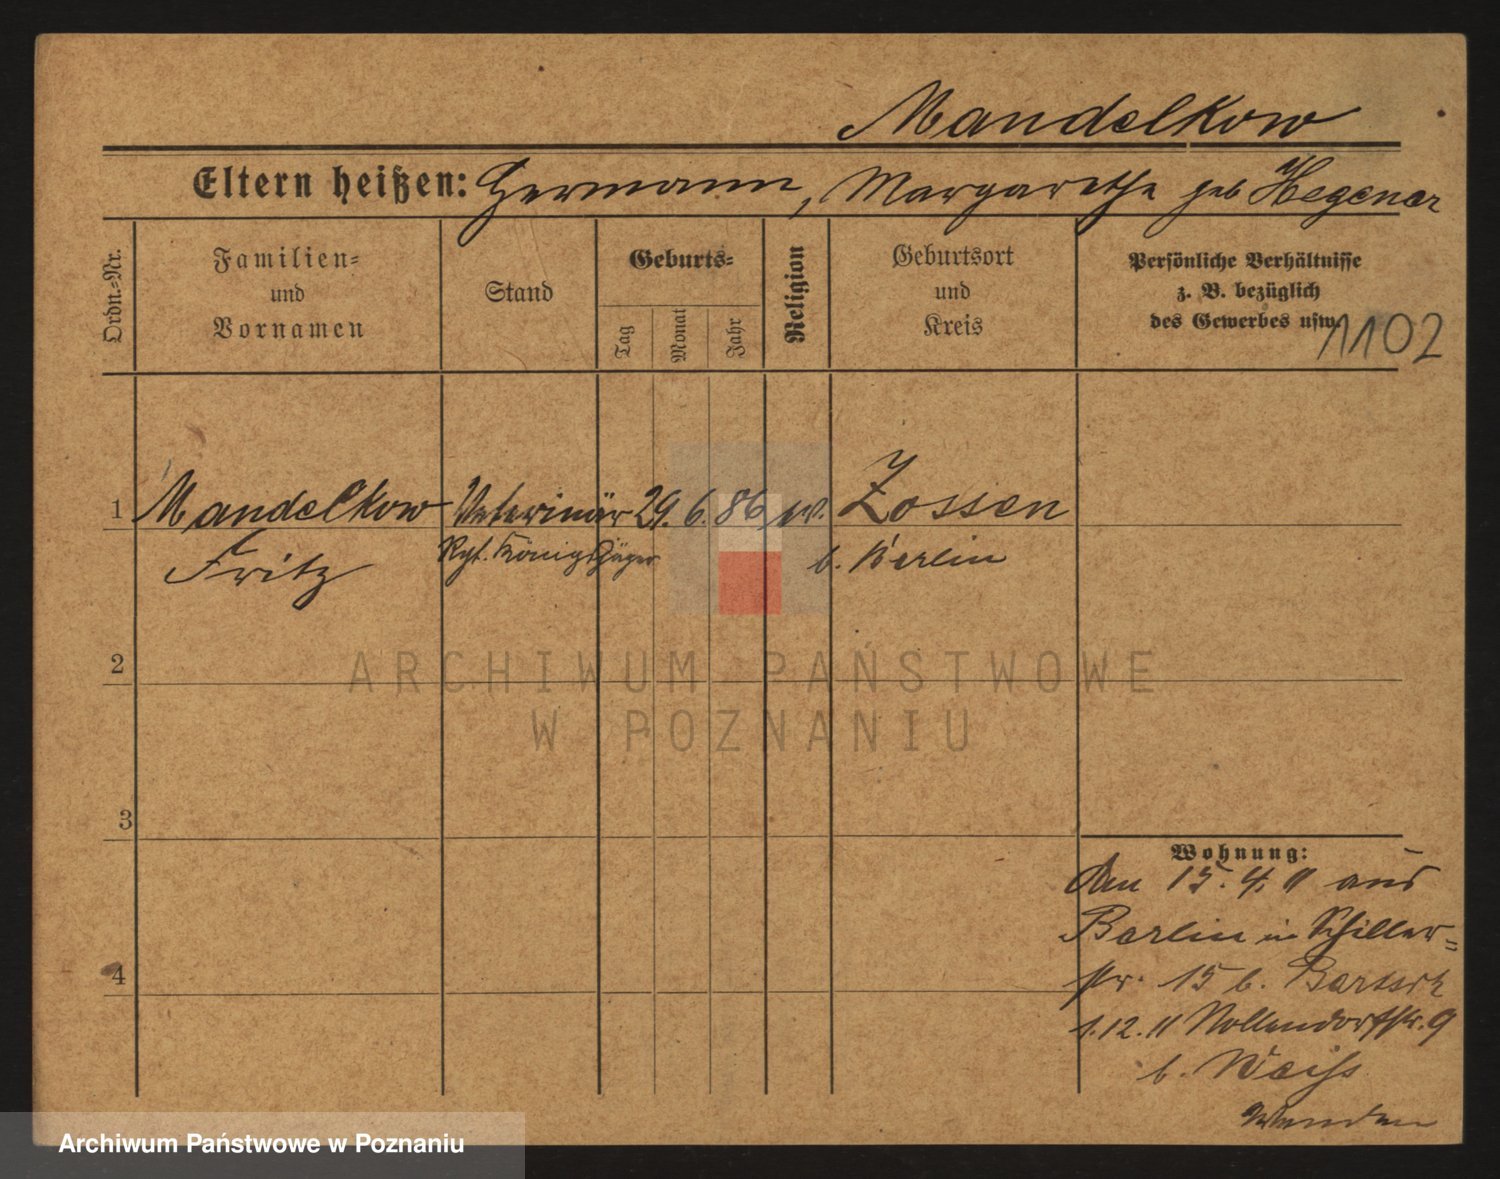 Mandelkow
Eltern heißen: Hermann, Margarethe geb Hegener
Ordn.-Nr.
Familien-
und
Vornamen
Stand
Geburts-
Tag
Monat
Jahr
Religion
Geburtsort
und
Kreis
Persönliche Verhältnisse
z. B. bezüglich
des Gewerbes usw.
1102
1 Mandelkow Veterinär 29. 6. 86 ev. Zossen
Fritz Rgt. Königsjäger b. Berlin
2
ARCHIWUM PAŃSTWOWE
W POZNANIU
3
Wohnung:
Am 15. 4. 11 aus
Berlin in Schiller-
4
str. 15 b.
1. 12. 11 Nollendorfstr. 9
b. Weiss
Archiwum Państwowe w Poznaniu